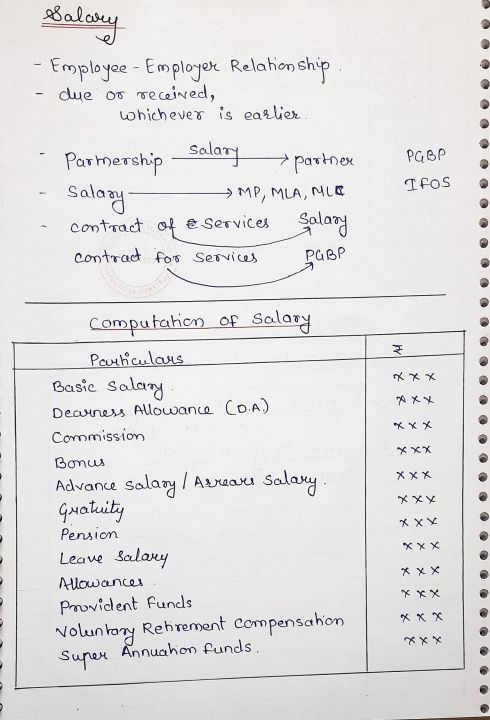 Salary
- Employee - Employer Relationship.
- due or received,
whichever is earlier.
- Partnership Salary → partner PGBP
- Salary → MP, MLA, MLC IFOS
- contract of Services Salary
contract for Services PGBP
Computation of Salary
Particulars ₹
Basic Salary. x x x
Dearness Allowance (D.A.) x x x
Commission x x x
Bonus x x x
Advance Salary / Arrears Salary. x x x
Gratuity x x x
Pension x x x
Leave Salary x x x
Allowances. x x x
Provident Funds x x x
Voluntary Retirement Compensation x x x
Super Annuation Funds. x x x